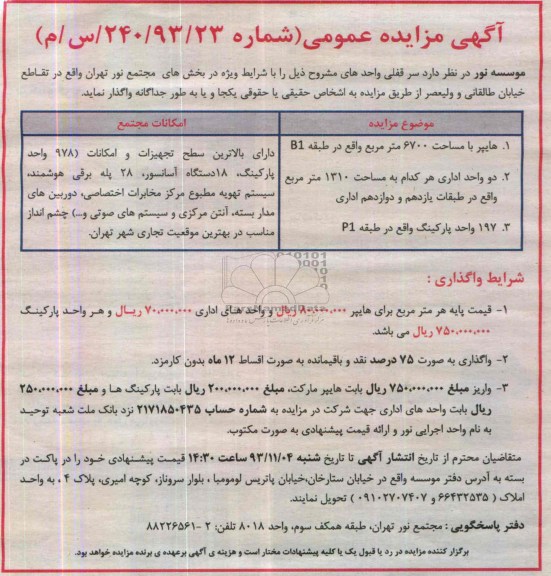 آگهی مزایده عمومی(شماره ۲۴۰/۹۳/۲۳/س/م)
موسسه نور در نظر دارد سر قفلی واحد های مشروح ذیل را با شرایط ویژه در بخش های مجتمع نور تهران واقع در تقاطع
خیابان طالقانی و ولیعصر از طریق مزایده به اشخاص حقیقی یا حقوقی یکجا و یا به طور جداگانه واگذار نماید.
موضوع مزایده
۱. هایپر با مساحت ۶۷۰۰ متر مربع واقع در طبقه B1
۲. دو واحد اداری هر کدام به مساحت ۱۳۱۰ متر مربع
واقع در طبقات یازدهم و دوازدهم اداری
۳. ۱۹۷ واحد پارکینگ واقع در طبقه P1
امکانات مجتمع
دارای بالاترین سطح تجهیزات و امکانات (۹۷۸ واحد
پارکینگ، ۱۸دستگاه آسانسور، ۲۸ پله برقی هوشمند،
سیستم تهویه مطبوع مرکز مخابرات اختصاصی، دوربین های
مدار بسته، آنتن مرکزی و سیستم های صوتی و...) چشم انداز
مناسب در بهترین موقعیت تجاری شهر تهران.
شرایط واگذاری :
۱- قیمت پایه هر متر مربع برای هایپر ۸۰.۰۰۰.۰۰۰ ریال و واحد های اداری ۷۰.۰۰۰.۰۰۰ ریال و هر واحد پارکینگ
۷۵۰.۰۰۰.۰۰۰ ریال می باشد.
۲- واگذاری به صورت ۷۵ درصد نقد و باقیمانده به صورت اقساط ۱۲ ماه بدون کارمزد.
۳- واریز مبلغ ۷۵۰.۰۰۰.۰۰۰ ریال بابت هایپر مارکت، مبلغ ۲۰۰.۰۰۰.۰۰۰ ریال بابت پارکینگ ها و مبلغ ۲۵۰.۰۰۰.۰۰۰
ریال بابت واحد های اداری جهت شرکت در مزایده به شماره حساب ۲۱۷۱۸۵۰۴۳۵ نزد بانک ملت شعبه توحید
به نام واحد اجرایی نور و ارائه قیمت پیشنهادی به صورت مکتوب.
متقاضیان محترم از تاریخ انتشار آگهی تا تاریخ شنبه ۹۳/۱۱/۰۴ ساعت ۱۴:۳۰ قیمت پیشنهادی خود را در پاکت در
بسته به آدرس دفتر موسسه واقع در خیابان ستارخان،خیابان پاتریس لومومبا ، بلوار سروناز، کوچه امیری، پلاک ۴ ، به واحد
املاک ( ۶۶۴۳۲۵۳۵ و ۰۹۱۰۲۷۰۷۴۰۷ ) تحویل نمایند.
دفتر پاسخگویی : مجتمع نور تهران، طبقه همکف سوم، واحد ۸۰۱۸ تلفن: ۲ -۸۸۲۲۶۵۶۱
برگزار کننده مزایده در رد یا قبول یک یا کلیه پیشنهادات مختار است و هزینه ی آگهی برعهده ی برنده مزایده خواهد بود.